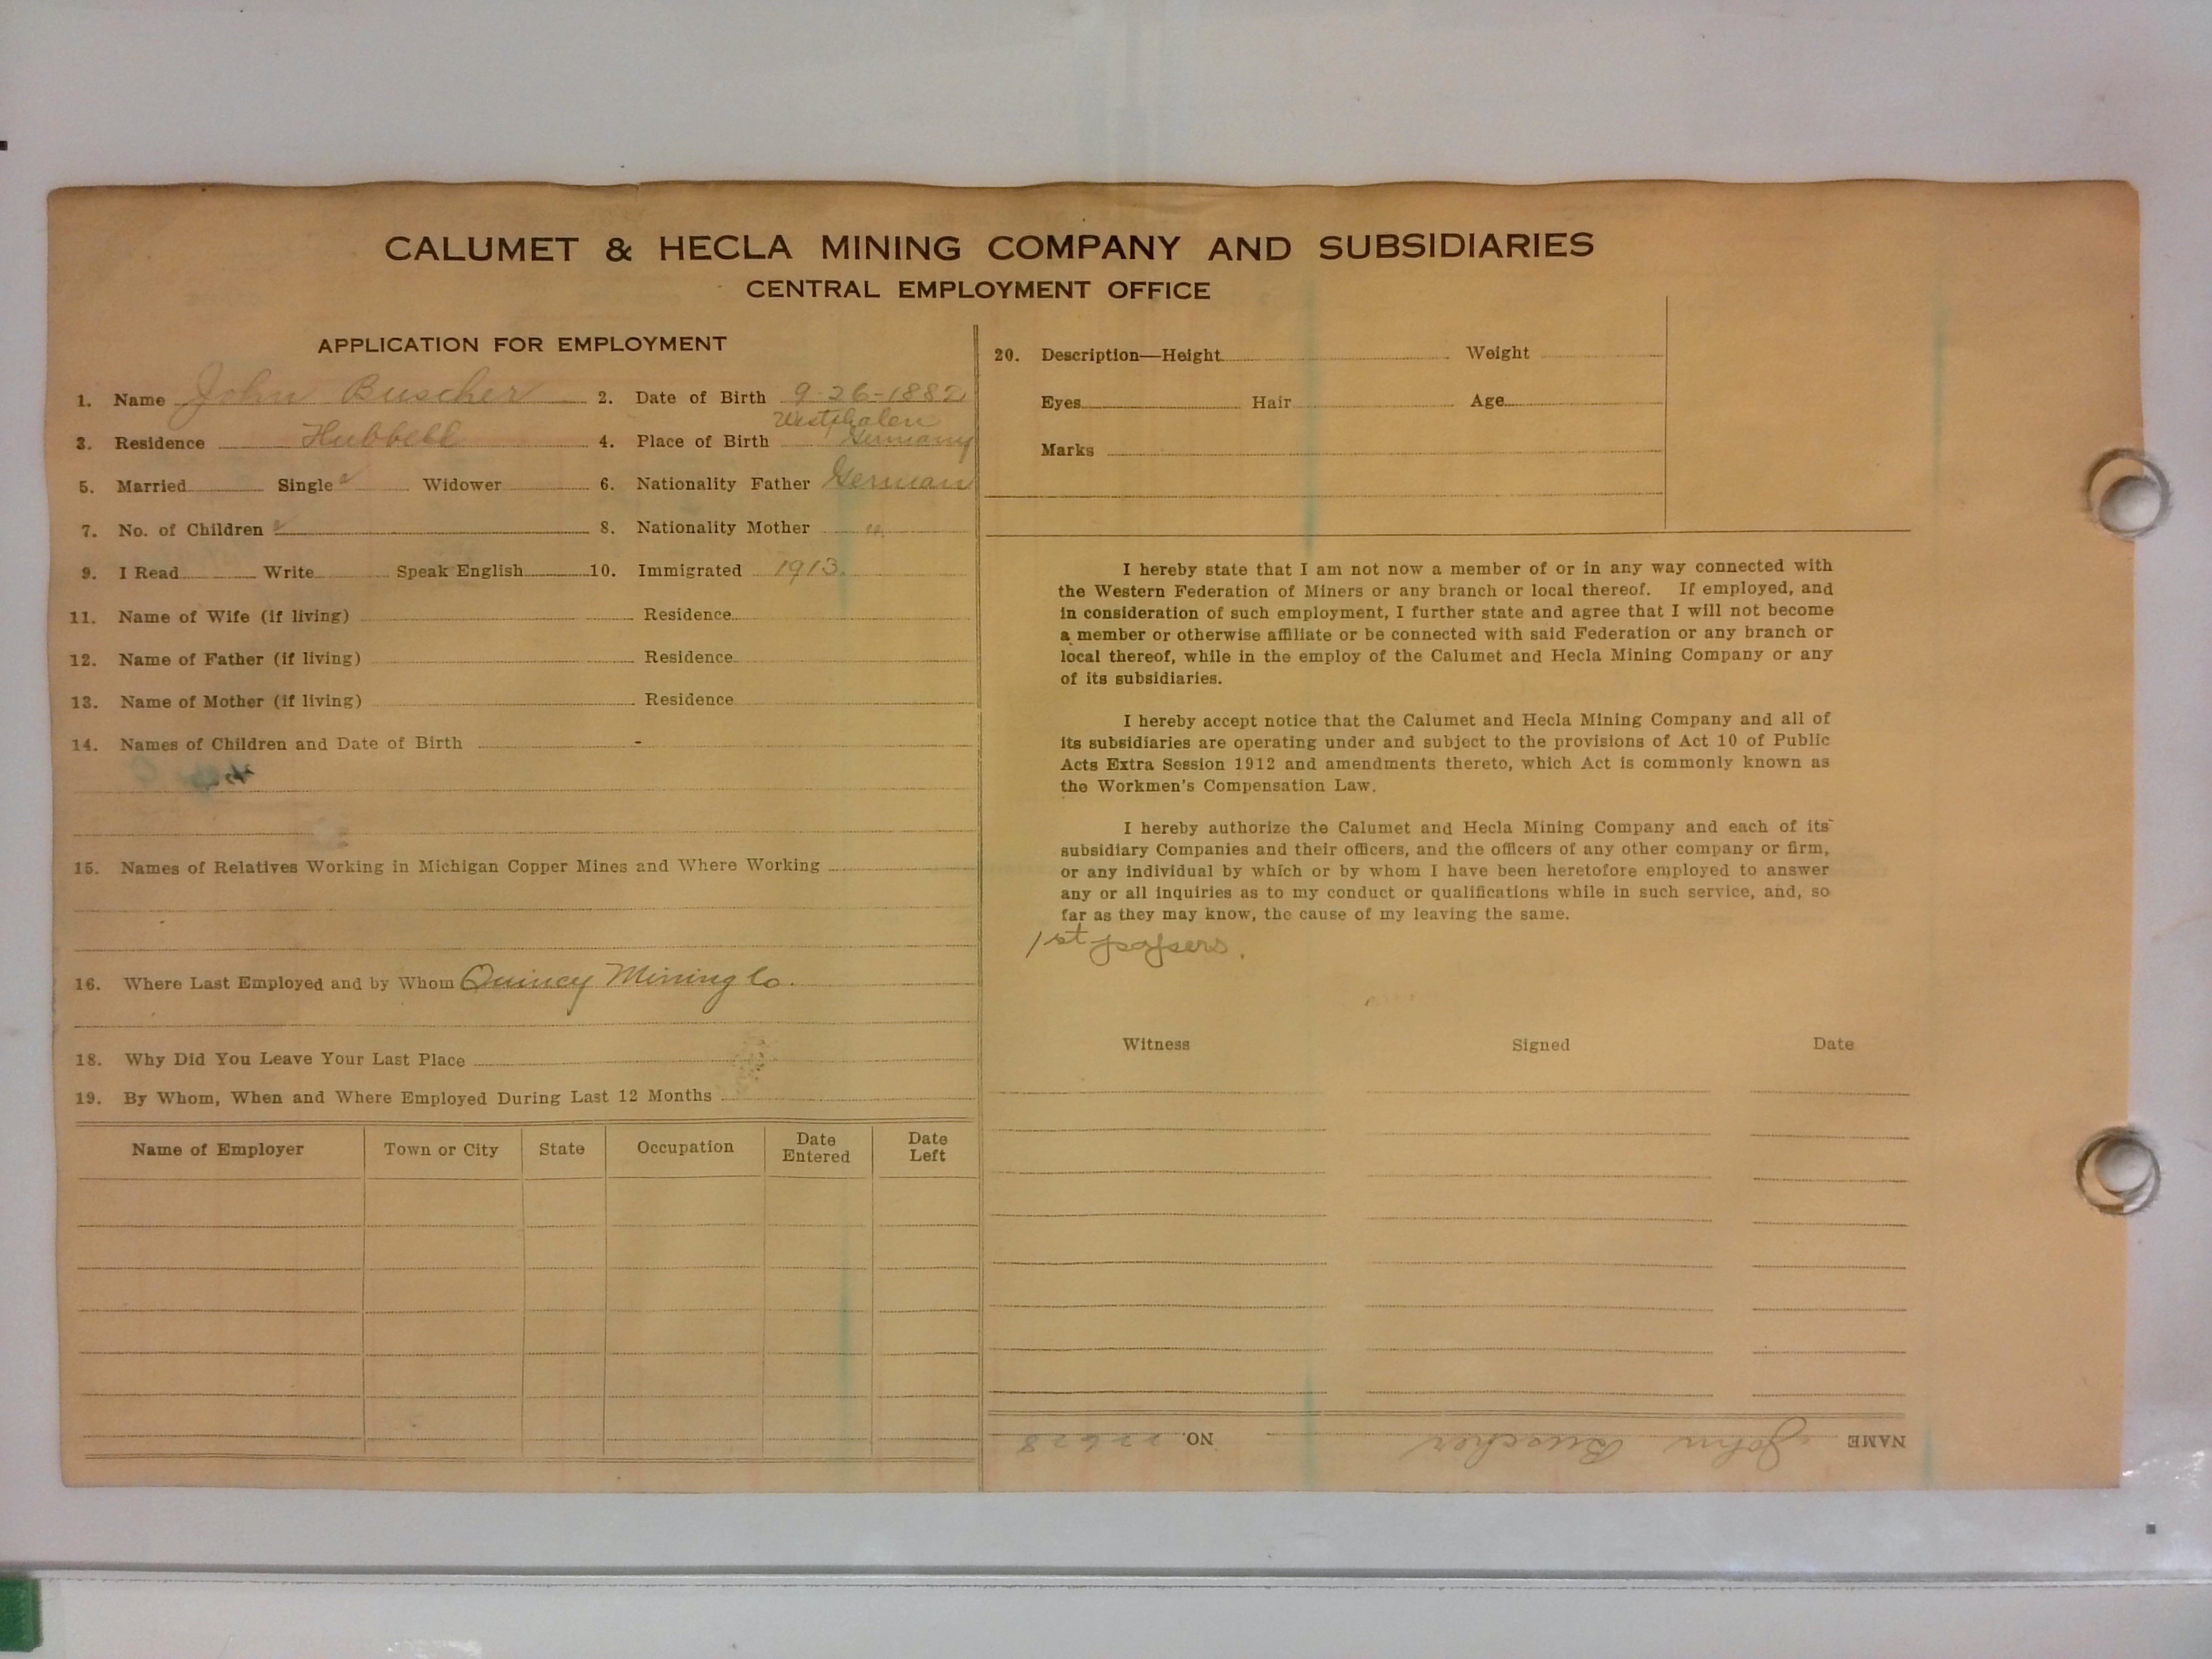 CALUMET & HECLA MINING COMPANY AND SUBSIDIARIES
CENTRAL EMPLOYMENT OFFICE
APPLICATION FOR EMPLOYMENT
1. Name John Buscher 2. Date of Birth 9-26-1882
Westphalen
3. Residence Hubbell 4. Place of Birth Germany
5. Married Single ✓ Widower 6. Nationality Father German
7. No. of Children ✓ 8. Nationality Mother "
9. I Read Write Speak English 10. Immigrated 1913.
11. Name of Wife (if living) Residence
12. Name of Father (if living) Residence
13. Name of Mother (if living) Residence
14. Names of Children and Date of Birth -
15. Names of Relatives Working in Michigan Copper Mines and Where Working
16. Where Last Employed and by Whom Quincy Mining Co.
18. Why Did You Leave Your Last Place
19. By Whom, When and Where Employed During Last 12 Months
Name of Employer Town or City State Occupation Date Entered Date Left
20. Description—Height Weight
Eyes Hair Age
Marks
I hereby state that I am not now a member of or in any way connected with
the Western Federation of Miners or any branch or local thereof. If employed, and
in consideration of such employment, I further state and agree that I will not become
a member or otherwise affiliate or be connected with said Federation or any branch or
local thereof, while in the employ of the Calumet and Hecla Mining Company or any
of its subsidiaries.
I hereby accept notice that the Calumet and Hecla Mining Company and all of
its subsidiaries are operating under and subject to the provisions of Act 10 of Public
Acts Extra Session 1912 and amendments thereto, which Act is commonly known as
the Workmen's Compensation Law.
I hereby authorize the Calumet and Hecla Mining Company and each of its
subsidiary Companies and their officers, and the officers of any other company or firm,
or any individual by which or by whom I have been heretofore employed to answer
any or all inquiries as to my conduct or qualifications while in such service, and, so
far as they may know, the cause of my leaving the same.
1st papers.
Witness Signed Date
NAME John Buscher NO. 22628